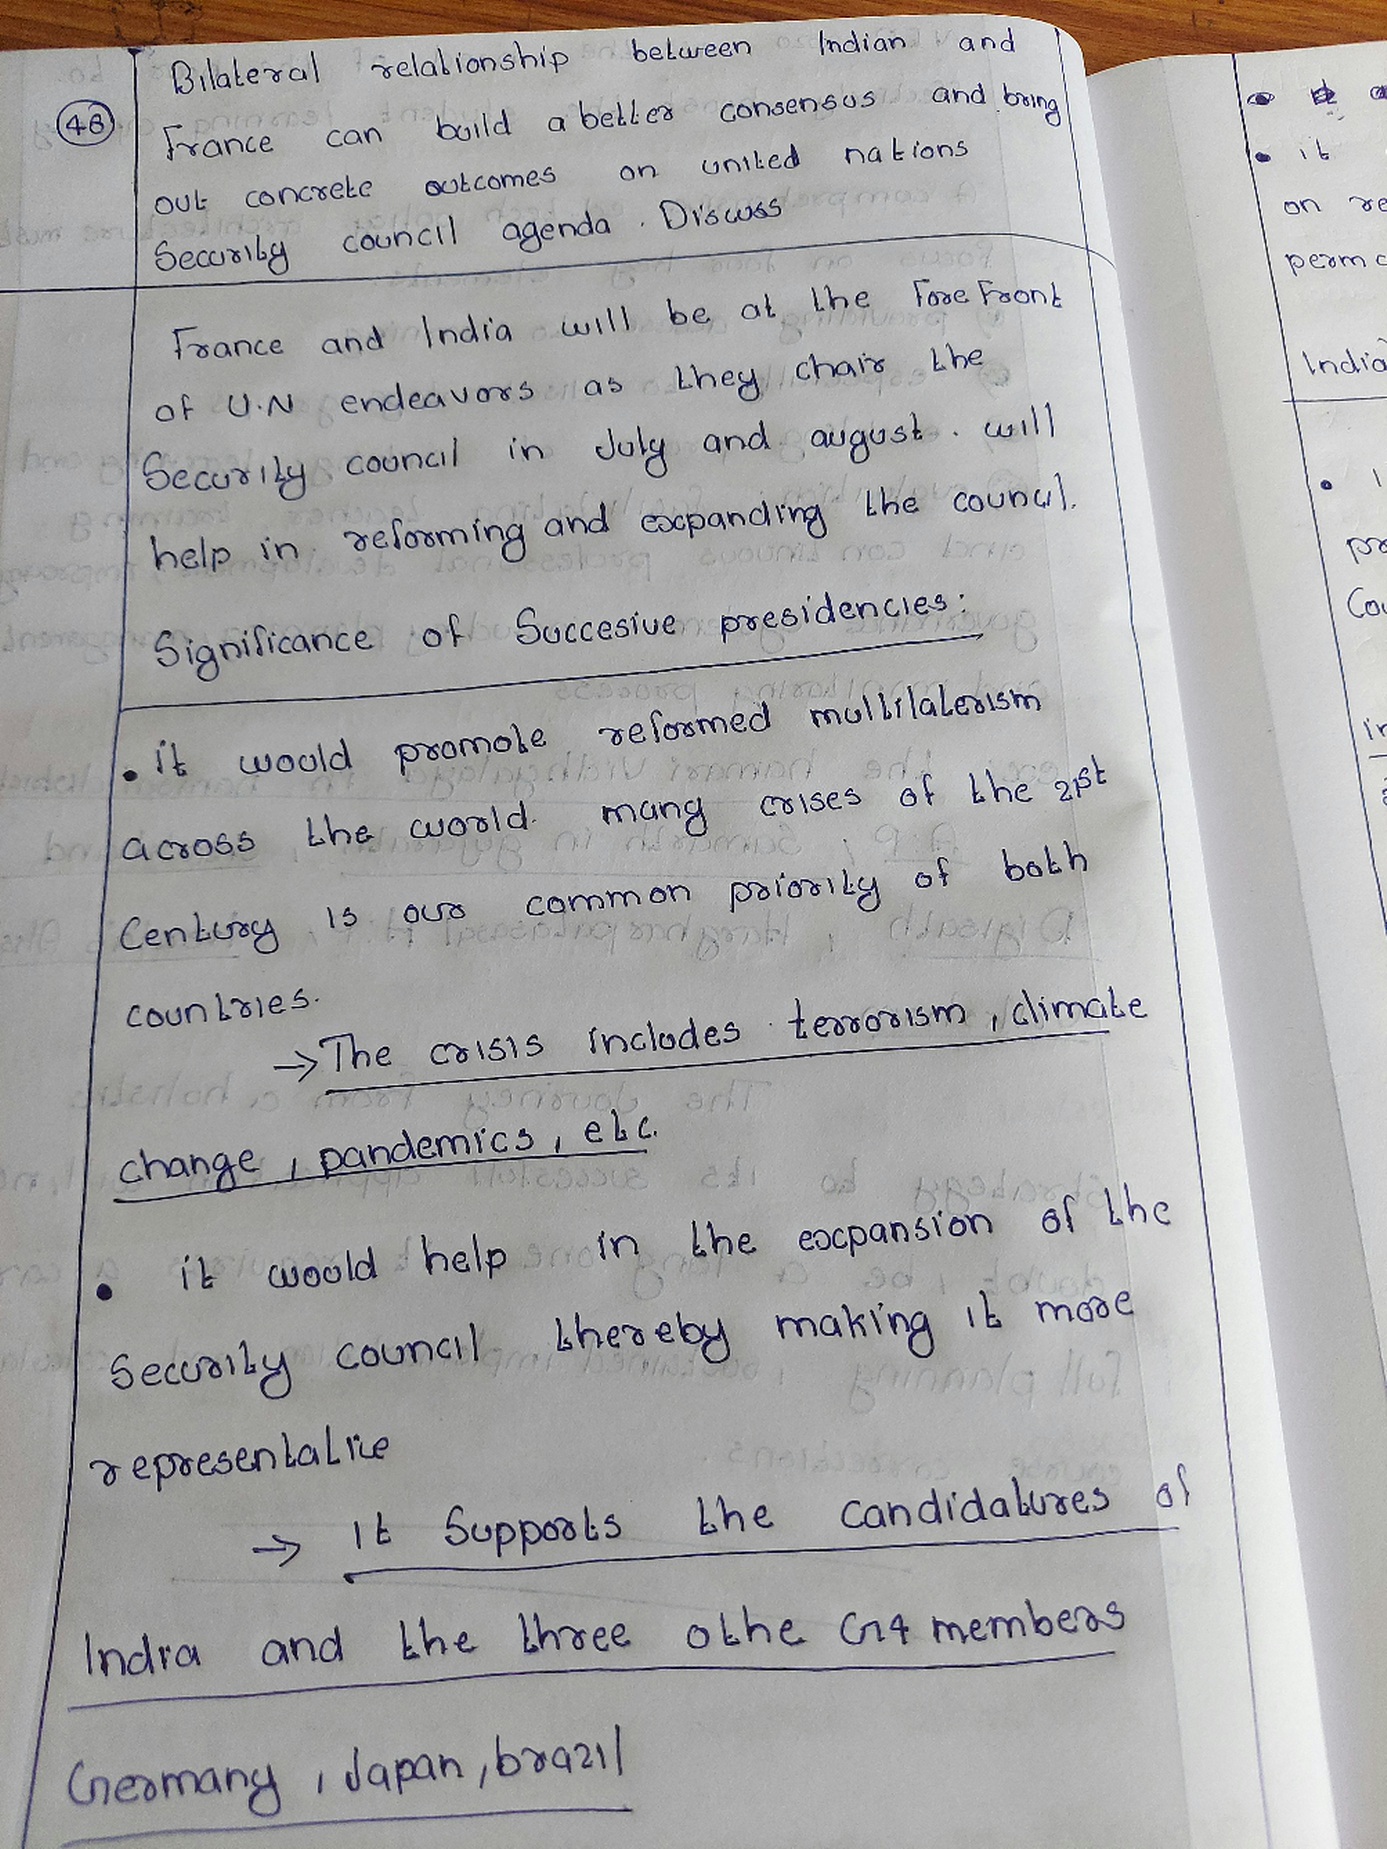 Bilateral relationship between Indian and
48
France can build a better consensus and bring
out concrete outcomes on united nations
Security council agenda. Discuss
France and India will be at the Fore Front
of U.N endeavors as they chair the
Security council in July and august. will
help in reforming and expanding the council.
Significance of Succesive presidencies:
• it would promote reformed multilaterism
across the world. many crises of the 21st
Century is our common priority of both
countries.
→ The crisis includes terrorism, climate
change, pandemics, etc.
• it would help in the expansion of the
Security council thereby making it more
representative
→ It Supports the candidatures of
India and the three othe G4 members
Germany, Japan, brazil
• it
on re
perm
India
•
pr
Cou
in